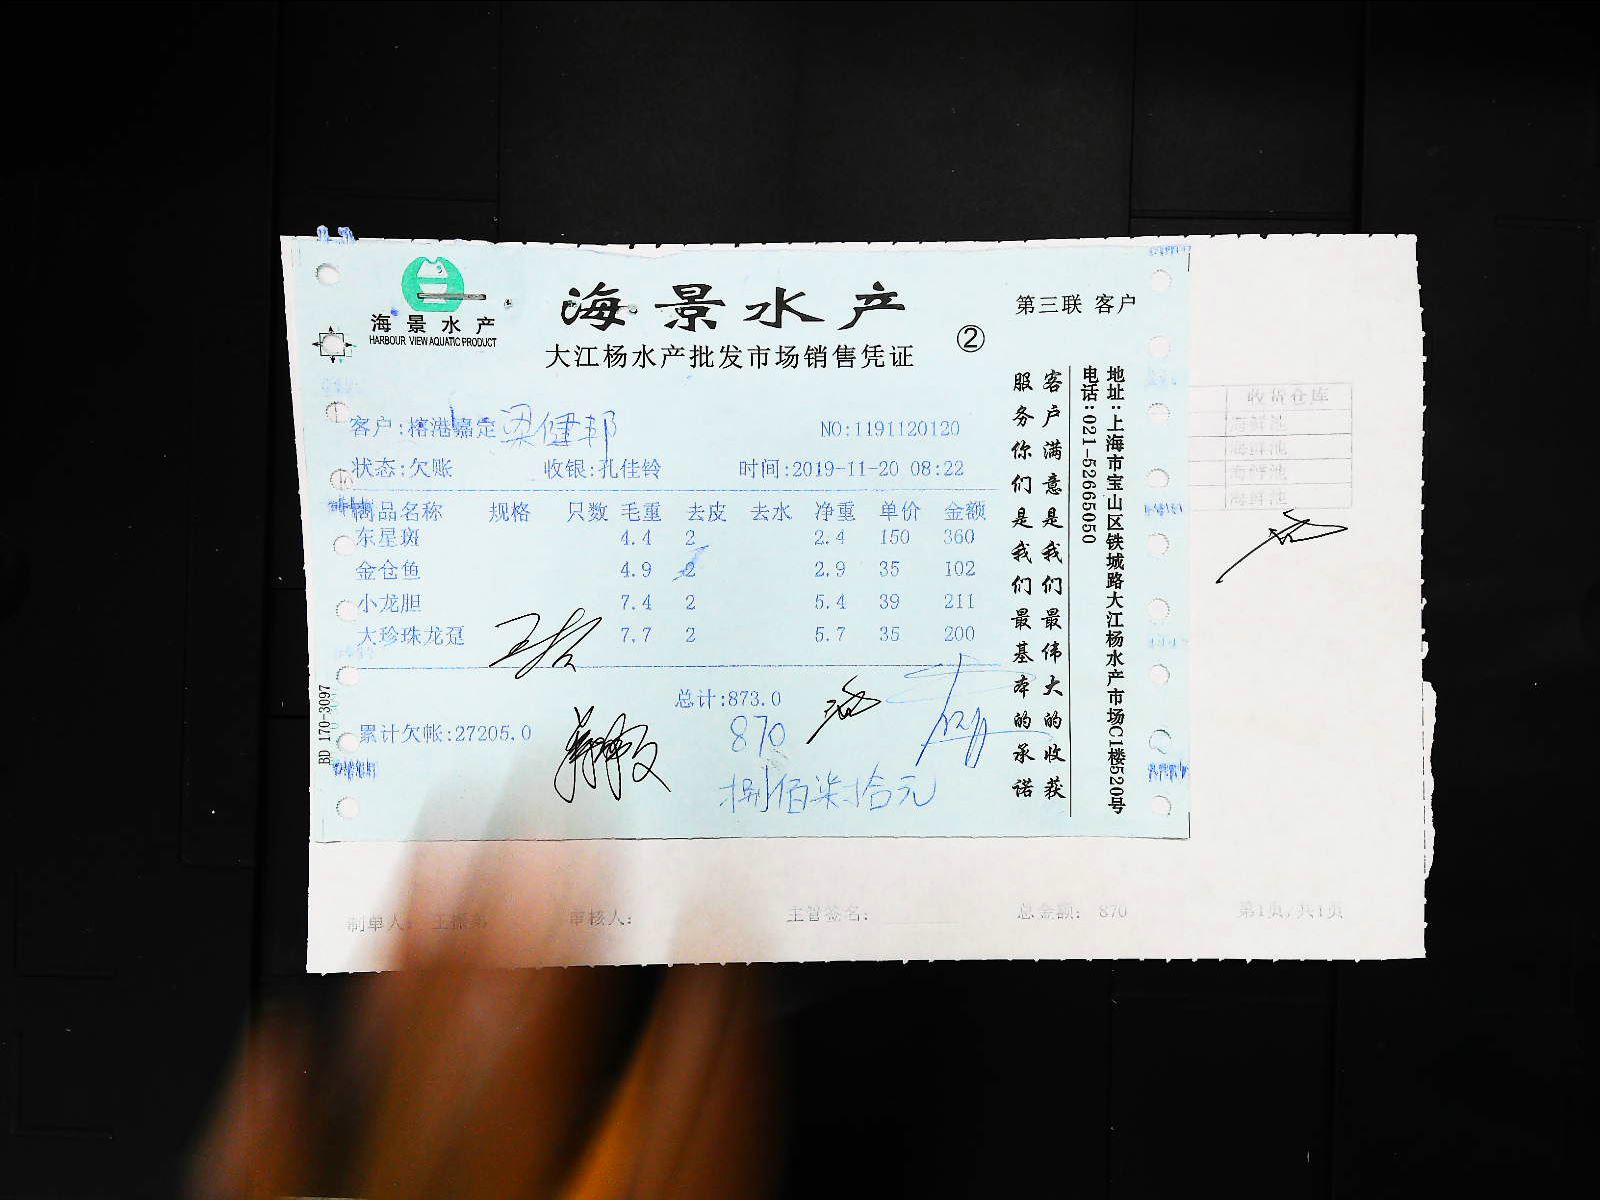 海景水产
HARBOUR VIEW AQUATIC PRODUCT
海景水产
大江杨水产批发市场销售凭证
②
第三联 客户
客户:榕港嘉定 梁健邦
NO:1191120120
状态:欠账 收银:孔佳铃 时间:2019-11-20 08:22
商品名称 规格 只数 毛重 去皮 去水 净重 单价 金额
东星斑 4.4 2 2.4 150 360
金仓鱼 4.9 2 2.9 35 102
小龙胆 7.4 2 5.4 39 211
大珍珠龙趸 7.7 2 5.7 35 200
总计:873.0
累计欠帐:27205.0
870
捌佰柒拾元
BD 170-3097
客户满意是我们最伟大的收获
服务你们是我们最基本的承诺
地址:上海市宝山区铁城路大江杨水产市场C1楼520号
电话:021-52665050
收货仓库
海鲜池
海鲜池
海鲜池
海鲜池
制单人: 审核人: 主管签名: 总金额: 870 第1页/共1页